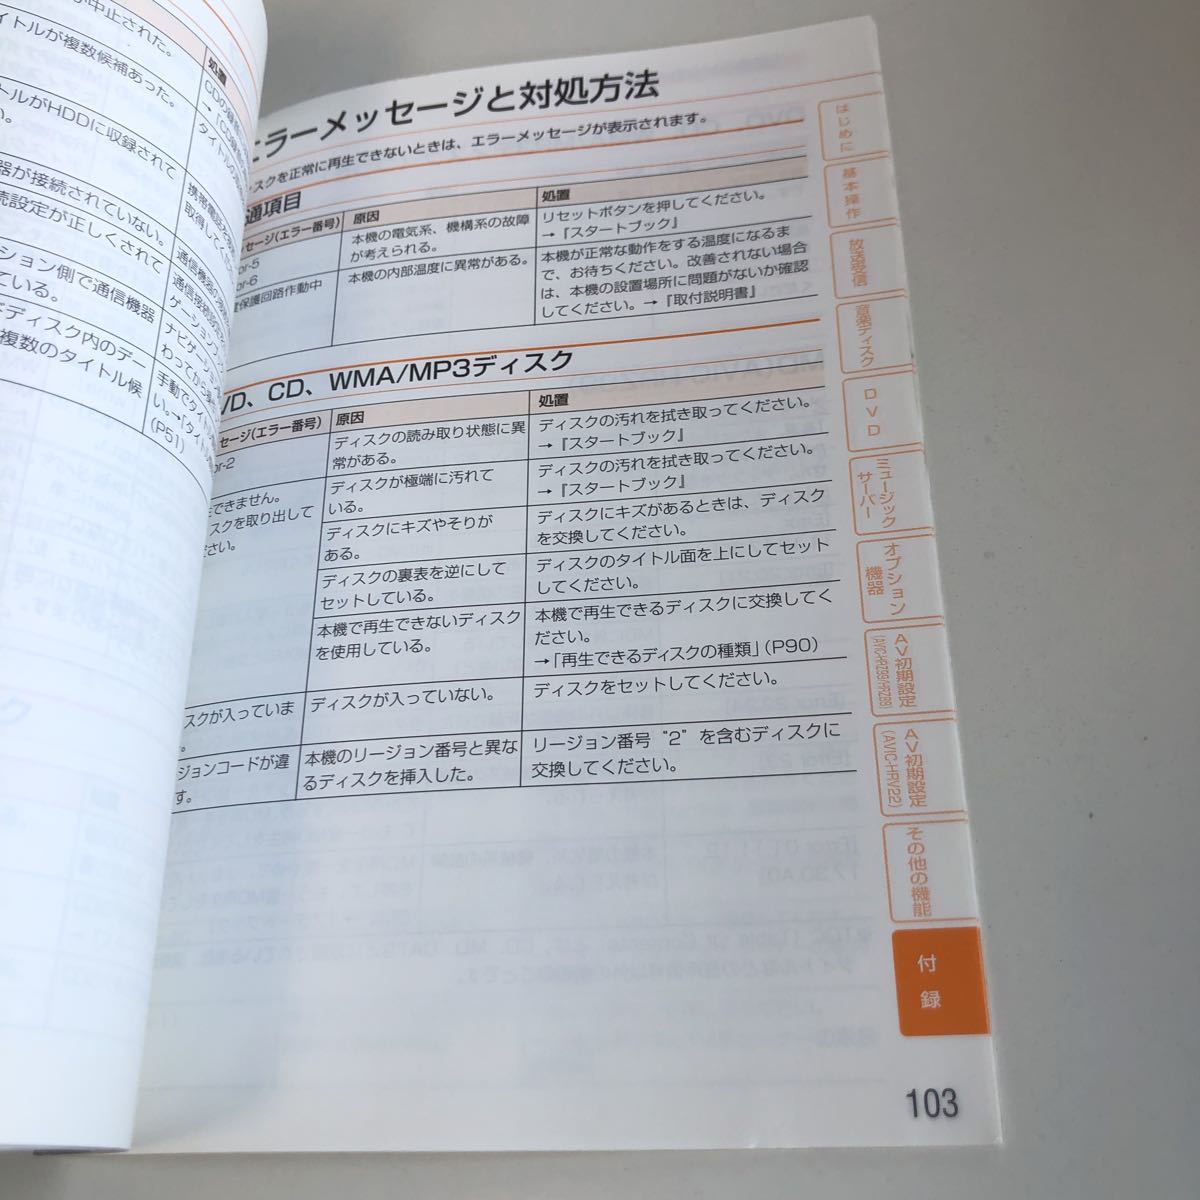 中止された。
イトルが複数候補あった。
トルがHDDに収録されて
い。
器が接続されていない。
続設定が正しくされて
ション側で通信機器
ている。
ディスク内のデー
複数のタイトル候
処置
わってから
手動でタイト
い。→「タイ
(P51)
エラーメッセージと対処方法
スクを正常に再生できないときは、エラーメッセージが表示されます。
通項目
セージ(エラー番号)
原因
処置
or-5
本機の電気系、機構系の故障
が考えられる。
リセットボタンを押してください。
→『スタートブック』
or-6
保護回路作動中
本機の内部温度に異常がある。
本機が正常な動作をする温度になるま
で、お待ちください。改善されない場合
は、本機の設置場所に問題がないか確認
してください。→『取付説明書』
VD、CD、WMA/MP3ディスク
セージ(エラー番号)
原因
処置
or-2
ディスクの読み取り状態に異
常がある。
ディスクの汚れを拭き取ってください。
→『スタートブック』
できません。
スクを取り出して
ださい。
ディスクが極端に汚れて
いる。
ディスクの汚れを拭き取ってください。
→『スタートブック』
ディスクにキズやそりが
ある。
ディスクにキズがあるときは、ディスク
を交換してください。
ディスクの裏表を逆にして
セットしている。
ディスクのタイトル面を上にしてセット
してください。
本機で再生できないディスク
を使用している。
本機で再生できるディスクに交換してく
ださい。
→「再生できるディスクの種類」(P90)
スクが入っていま
。
ディスクが入っていない。
ディスクをセットしてください。
ジョンコードが違
す。
本機のリージョン番号と異な
るディスクを挿入した。
リージョン番号“2”を含むディスクに
交換してください。
はじめに
基本操作
放送受信
音楽ディスク
DVD
ミュージック
サーバー
オプション
機器
AV初期設定
(AVIC-HRZ99/HRZ88)
AV初期設定
(AVIC-HRV22)
その他の機能
付録
103